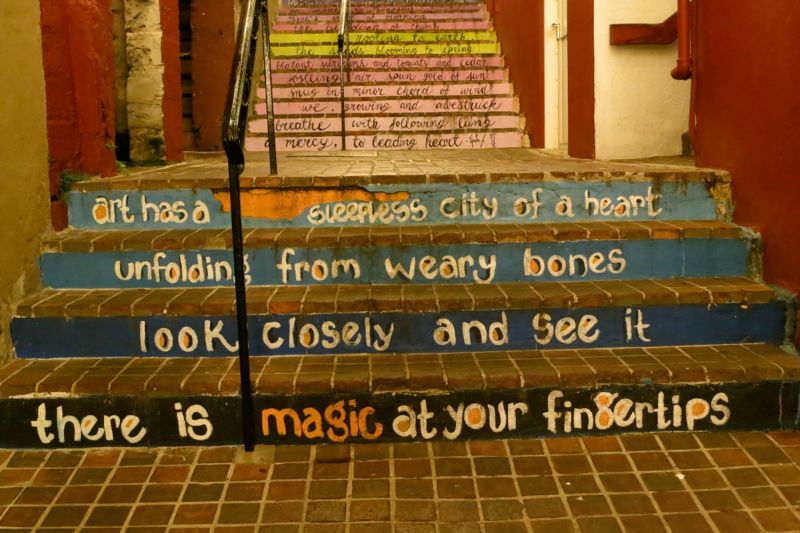 rooting to earth
the seeds blooming to spring
jostling air, spun gold of sun
snug in minor chord of wind
we, growing and awestruck
breathe with following lung
a mercy, to leading heart
art has a sleepless city of a heart
unfolding from weary bones
look closely and see it
there is magic at your fingertips